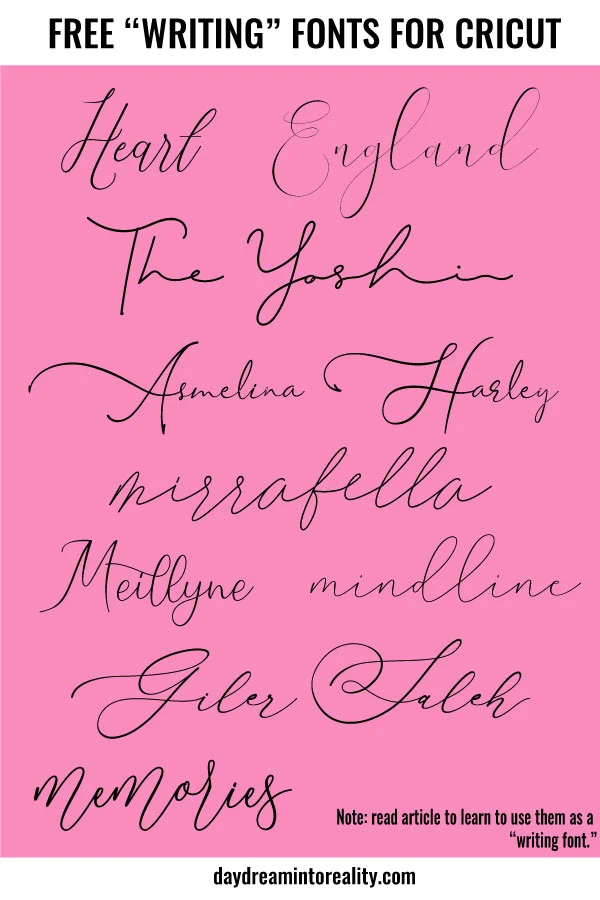 FREE “WRITING” FONTS FOR CRICUT
Heart England
The Yoshin
Asmelina Harley
mirrafella
Meitllyne mindline
Giler Saleh
memories
Note: read article to learn to use them as a
“writing font.”
daydreamintoreality.com